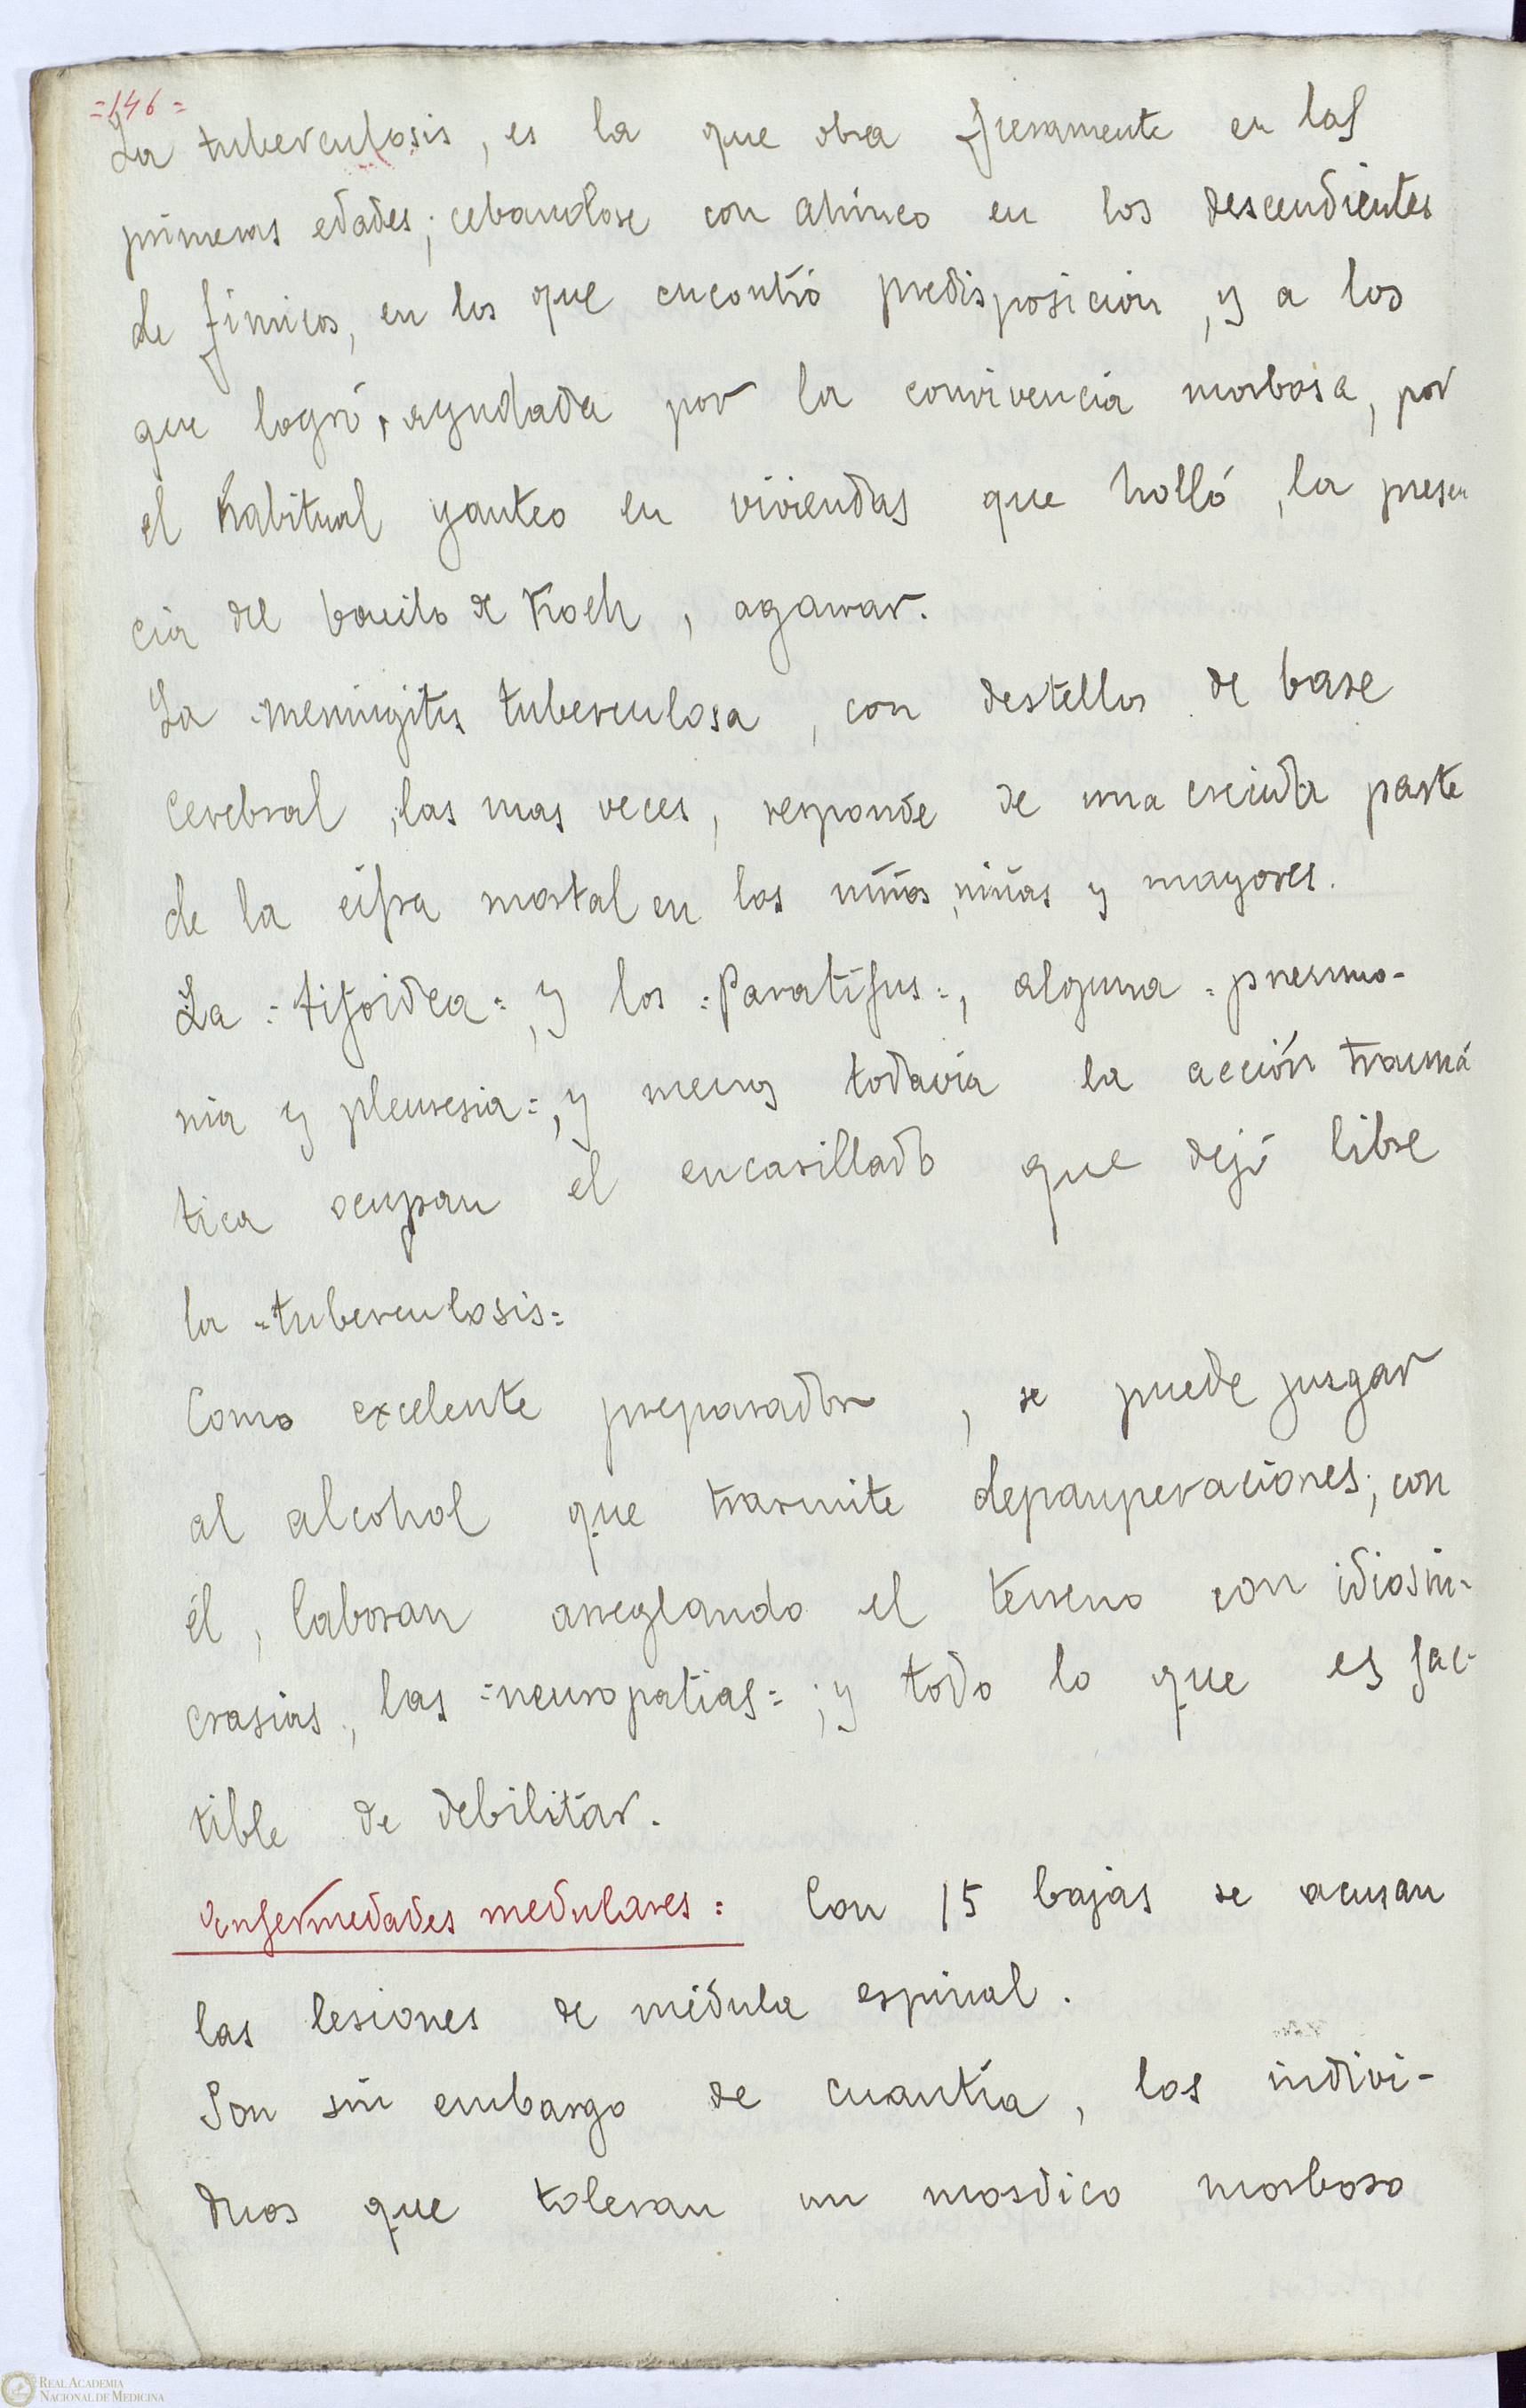 =146=
La tuberculosis, es la que obra fieramente en las
primeras edades; cebandose con ahinco en los descendientes
de fimicos, en los que encontró predisposicion, y a los
que logró, ayudada por la convivencia morbosa, por
el habitual yanteo en viviendas que holló, la presen
cia del bacilo de Koch, agarrar.
La =meningitis tuberculosa, con destellos de base
cerebral, las mas veces, responde de una crecida parte
de la cifra mortal en los niños, niñas y mayores.
La =tifoidea=, y los =Paratifus=, alguna =pneumo-
nia y pleuresia=, y menos todavía la acción traumá
tica ocupan el encasillado que dejó libre
la =tuberculosis=
Como excelente preparador, se puede juzgar
al alcohol que trasmite depauperaciones; con
él, laboran arreglando el terreno con idiosin-
crasias, las =neuropatias=; y todo lo que es fac-
tible de debilitar.
Enfermedades medulares= Con 15 bajas se acusan
las lesiones de médula espinal.
Son sin embargo de cuantía, los indivi-
duos que toleran un mordico morboso
REAL ACADEMIA
NACIONAL DE MEDICINA